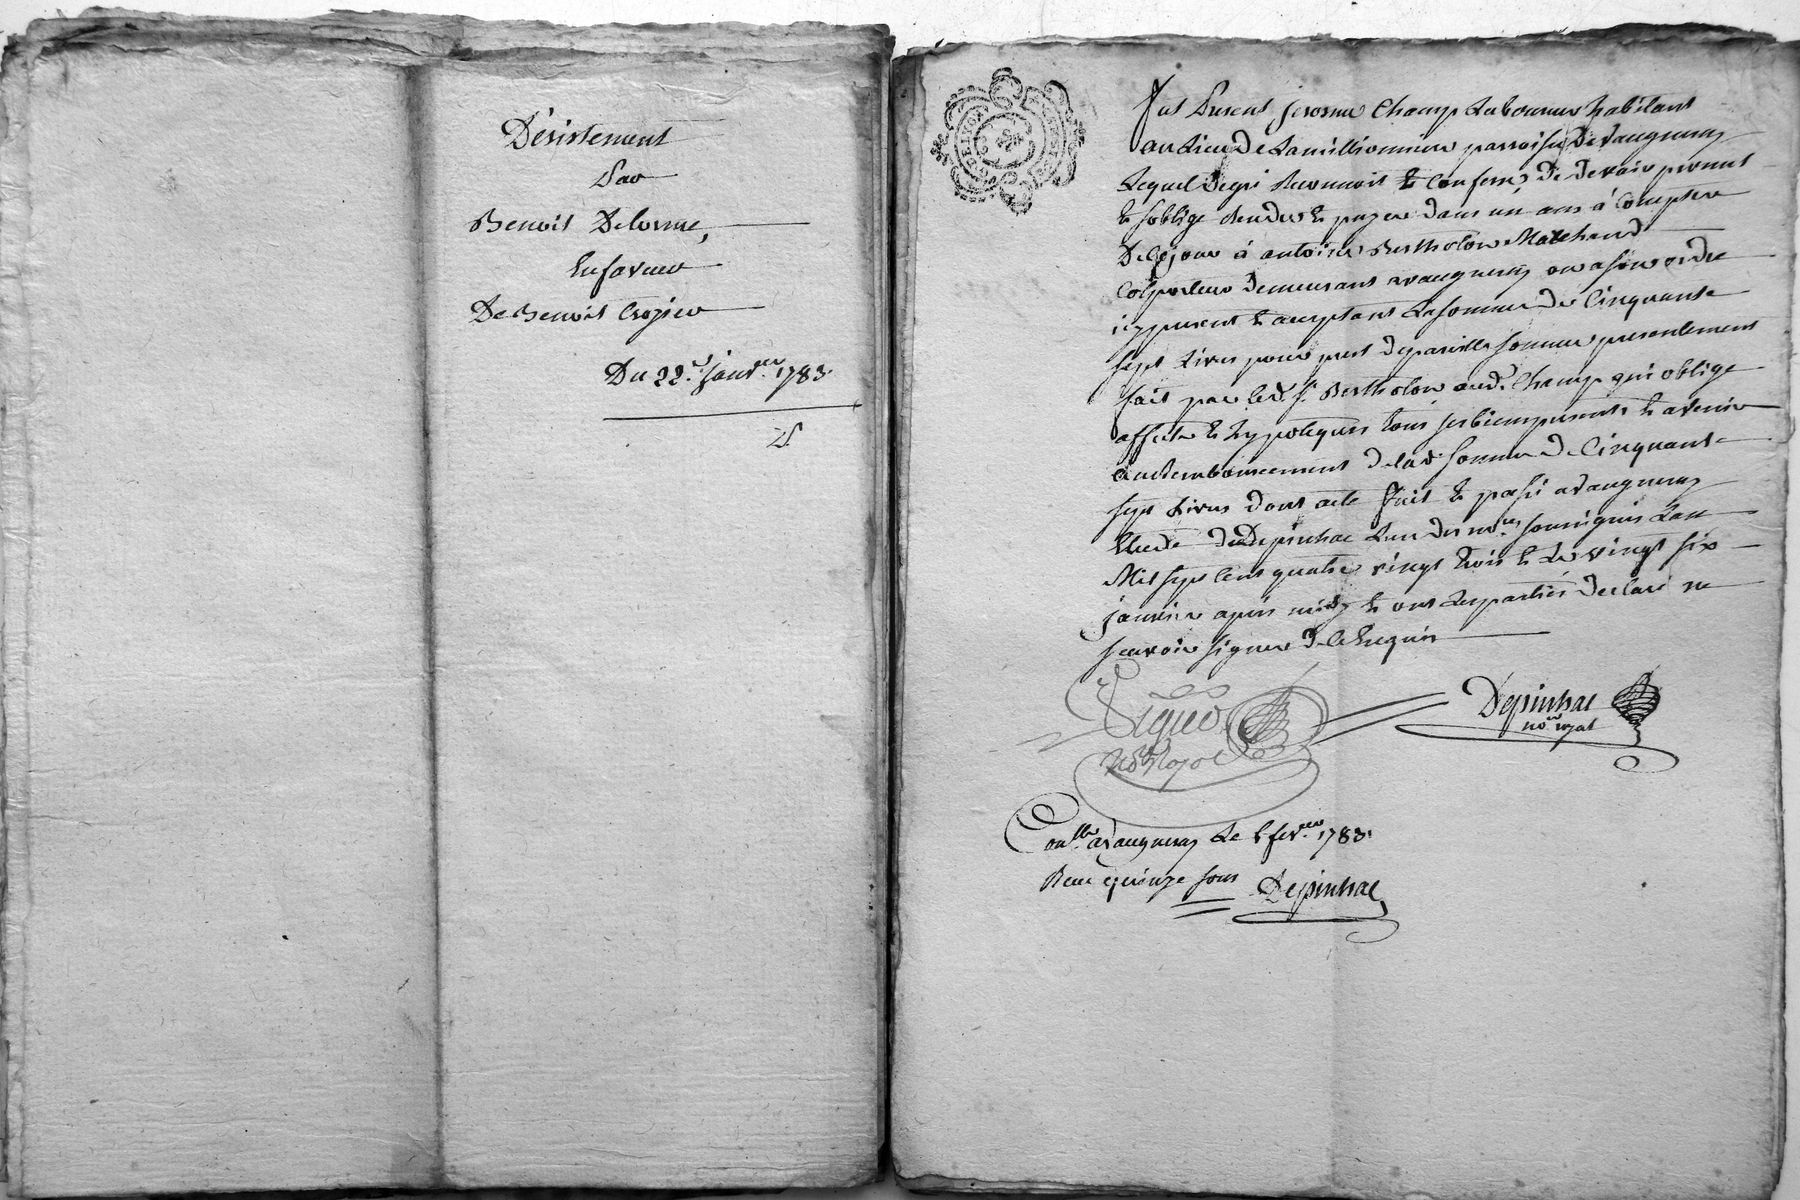 Désistement
Par
Benoit Delorme,
En faveur
De Benoit Crozier
Du 22.e janv.er 1783.
Fut Present Jerosme Champ Laboureur habitant
au Lieu De Lamillionniere parroisse De Vaugneray
Lequel Degré Reconnoit & Confesse De Devoir promet
& soblige Rendre & payer dans un ans à Compter
De Cejour à antoine Bertholon Marchand
Colporteur Demeurant avaugneray ou ason ordre
icy present & acceptant La somme De Cinquante
sept Livres pour prest De pareille somme presentement
fait par led. s. Bertholon aud. Champ qui oblige
affecte & hypoteque tous ses biens presents & avenir
au Remboursement De lad. somme De Cinquante
sept Livres Dont acte fait & passé avaugneray
Etude De Depinhac L'un Des no.res soussignés L'an
Mil sept Cent quatre vingt trois & Le vingt six
janvier apres midy & ont Les parties Declaré ne
scavoir signer De ce Enquis
no.re Royal
Depinhac
no.re royal
Con.lle avaugneray Le fev.rer 1783.
Recu quinze sous Depinhac